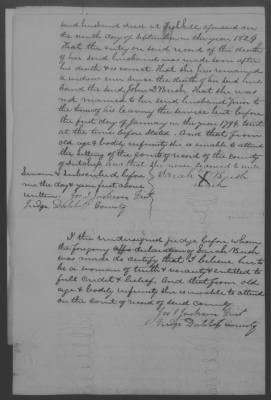 said husband died at Fishkill aforesaid on
the ninth day of September in the year 1824
That the entry on said record of the death
of her said husband was made soon after
his death & is correct. That she has remained
a widow ever since the death of her said hus
band the said John Brush. That she was
not married to her said husband prior to
the time of his leaving the service but before
the first day of January in the year 1794 to wit
at the time before stated. And that from
old age & bodily infirmity she is unable to attend
the sitting of the court of record of the county
of and that she never learned to write
Sworn & Subscribed before
me the days year first above
written. Jackson First
Judge County
her
X Brush
mark
I the undersigned judge before whom
the foregoing declaration of Brush
was made do certify that I believe her to
be a woman of truth & veracity entitled to
full credit & belief. And that from old
age & bodily infirmity she is unable to attend
on the court of record of said County
Jackson First
Judge County